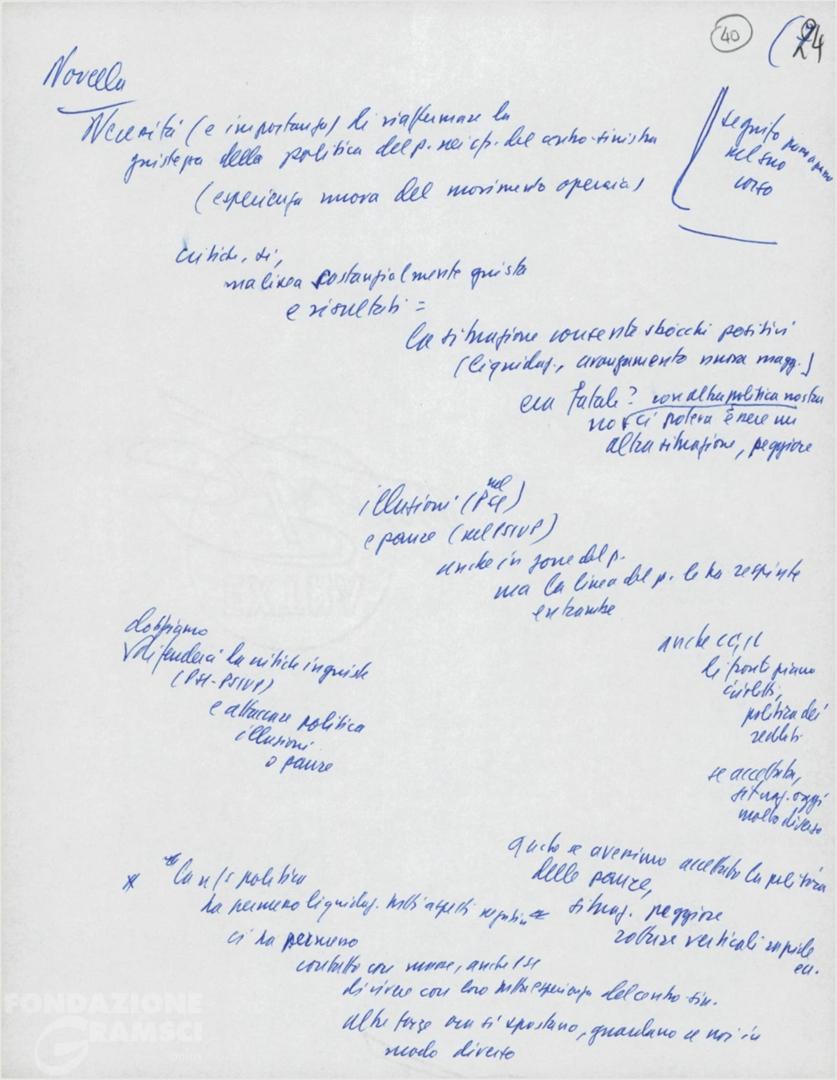 40
24
Novella
Necessità (e importanza) di riaffermare la
giustezza della politica del p. nei cfr. del centro-sinistra
(esperienza nuova del movimento operaio)
seguito
nel suo
corso
critiche, sì,
ma linea sostanzialmente giusta
e risultati =
la situazione consente sbocchi positivi
(liquidaz., avanzamento nuova magg.)
era fatale? con altra politica nostra
ci poteva essere un
altra situazione, peggiore
illusioni (nel PSI)
e paure (nel PSIUP)
anche in zone del p.
ma la linea del p. le ha respinte
entrambe
dobbiamo
difenderci la critiche ingiuste
(PSI-PSIUP)
e attaccare politica
illusioni
o paure
anche CGIL
di fronte piano
Giolitti,
politica dei
redditi
se accettata,
situaz. oggi
molto diversa
anche se avessimo accettato la politica
delle paure,
situaz. peggiore
rotture verticali rapide
ecc.
* la n/s politica
ha permesso liquidaz. molti aspetti negativi
ci ha permesso
contatto con masse, anche PSI
di vivere con loro nella esperienza del centro-sin.
altre forze ora si spostano, guardano a noi in
modo diverso
FONDAZIONE
GRAMSCI